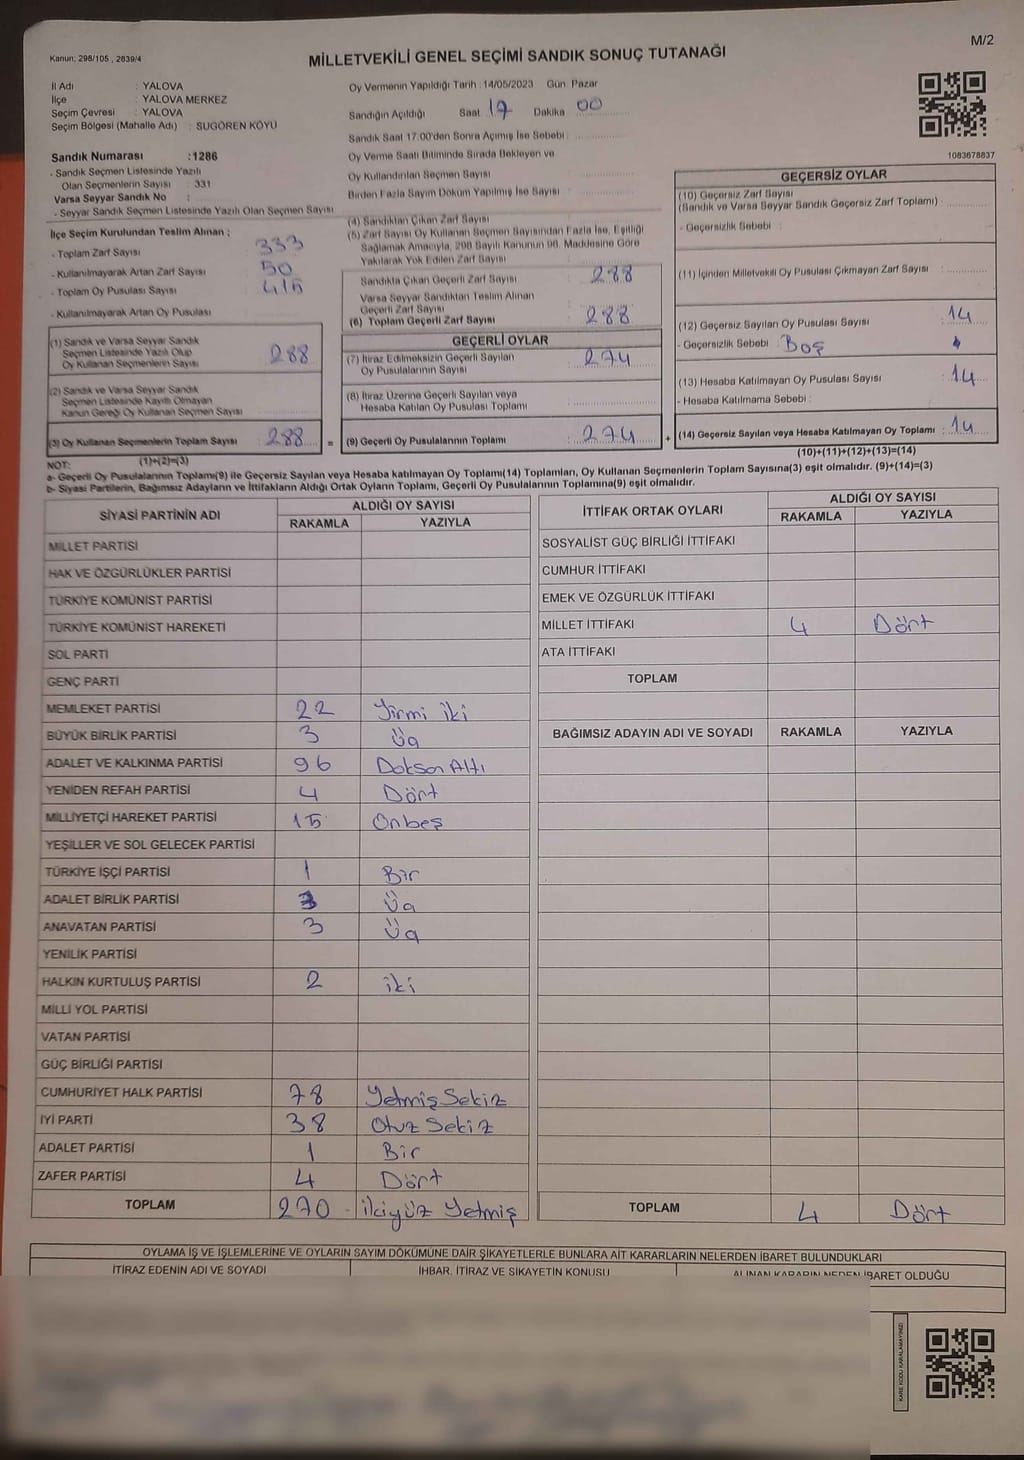 M/2
Kanun: 298/105 , 2839/4
MİLLETVEKİLİ GENEL SEÇİMİ SANDIK SONUÇ TUTANAĞI
İl Adı : YALOVA
İlçe : YALOVA MERKEZ
Seçim Çevresi : YALOVA
Seçim Bölgesi (Mahalle Adı) : SUGÖREN KÖYÜ
Sandık Numarası :1286
- Sandık Seçmen Listesinde Yazılı
Olan Seçmenlerin Sayısı : 331
Varsa Seyyar Sandık No :
- Seyyar Sandık Seçmen Listesinde Yazılı Olan Seçmen Sayısı
İlçe Seçim Kurulundan Teslim Alınan ;
- Toplam Zarf Sayısı : 333
- Kullanılmayarak Artan Zarf Sayısı : 50
- Toplam Oy Pusulası Sayısı : 415
- Kullanılmayarak Artan Oy Pusulası :
(1) Sandık ve Varsa Seyyar Sandık
Seçmen Listesinde Yazılı Olup
Oy Kullanan Seçmenlerin Sayısı : 288
(2) Sandık ve Varsa Seyyar Sandık
Seçmen Listesinde Kayıtlı Olmayan
Kanun Gereği Oy Kullanan Seçmen Sayısı
(3) Oy Kullanan Seçmenlerin Toplam Sayısı : 288 =
(1)+(2)=(3)
Oy Vermenin Yapıldığı Tarih : 14/05/2023 Gün : Pazar
Sandığın Açıldığı Saat 17 Dakika 00
Sandık Saat 17.00'den Sonra Açımış İse Sebebi :
Oy Verme Saati Bitiminde Sırada Bekleyen ve
Oy Kullandırılan Seçmen Sayısı :
Birden Fazla Sayım Döküm Yapılmış İse Sayısı
(4) Sandıktan Çıkan Zarf Sayısı :
(5) Zarf Sayısı Oy Kullanan Seçmen Sayısından Fazla İse, Eşitliği
Sağlamak Amacıyla, 298 Sayılı Kanunun 98. Maddesine Göre
Yakılarak Yok Edilen Zarf Sayısı :
Sandıkta Çıkan Geçerli Zarf Sayısı : 288
Varsa Seyyar Sandıktan Teslim Alınan
Geçerli Zarf Sayısı
(6) Toplam Geçerli Zarf Sayısı : 288
GEÇERLİ OYLAR
(7) İtiraz Edilmeksizin Geçerli Sayılan
Oy Pusulalarının Sayısı : 274
(8) İtiraz Üzerine Geçerli Sayılan veya
Hesaba Katılan Oy Pusulası Toplamı
(9) Geçerli Oy Pusulalarının Toplamı : 274 +
1083678837
GEÇERSİZ OYLAR
(10) Geçersiz Zarf Sayısı
(Sandık ve Varsa Seyyar Sandık Geçersiz Zarf Toplamı) :
- Geçersizlik Sebebi :
(11) İçinden Milletvekili Oy Pusulası Çıkmayan Zarf Sayısı :
(12) Geçersiz Sayılan Oy Pusulası Sayısı : 14
- Geçersizlik Sebebi : Boş
(13) Hesaba Katılmayan Oy Pusulası Sayısı : 14
- Hesaba Katılmama Sebebi :
(14) Geçersiz Sayılan veya Hesaba Katılmayan Oy Toplamı : 14
(10)+(11)+(12)+(13)=(14)
NOT:
a- Geçerli Oy Pusulalarının Toplamı(9) ile Geçersiz Sayılan veya Hesaba katılmayan Oy Toplamı(14) Toplamları, Oy Kullanan Seçmenlerin Toplam Sayısına(3) eşit olmalıdır. (9)+(14)=(3)
b- Siyasi Partilerin, Bağımsız Adayların ve İttifakların Aldığı Ortak Oyların Toplamı, Geçerli Oy Pusulalarının Toplamına(9) eşit olmalıdır.
SİYASİ PARTİNİN ADI ALDIĞI OY SAYISI
RAKAMLA YAZIYLA
MİLLET PARTİSİ
HAK VE ÖZGÜRLÜKLER PARTİSİ
TÜRKİYE KOMÜNİST PARTİSİ
TÜRKİYE KOMÜNİST HAREKETİ
SOL PARTİ
GENÇ PARTİ
MEMLEKET PARTİSİ 22 Yirmi iki
BÜYÜK BİRLİK PARTİSİ 3 Üç
ADALET VE KALKINMA PARTİSİ 96 Doksan Altı
YENİDEN REFAH PARTİSİ 4 Dört
MİLLİYETÇİ HAREKET PARTİSİ 15 Onbeş
YEŞİLLER VE SOL GELECEK PARTİSİ
TÜRKİYE İŞÇİ PARTİSİ 1 Bir
ADALET BİRLİK PARTİSİ 3 Üç
ANAVATAN PARTİSİ 3 Üç
YENİLİK PARTİSİ
HALKIN KURTULUŞ PARTİSİ 2 iki
MİLLİ YOL PARTİSİ
VATAN PARTİSİ
GÜÇ BİRLİĞİ PARTİSİ
CUMHURİYET HALK PARTİSİ 78 Yetmiş Sekiz
İYİ PARTİ 38 Otuz Sekiz
ADALET PARTİSİ 1 Bir
ZAFER PARTİSİ 4 Dört
TOPLAM 270 ikiyüz Yetmiş
İTTİFAK ORTAK OYLARI ALDIĞI OY SAYISI
RAKAMLA YAZIYLA
SOSYALİST GÜÇ BİRLİĞİ İTTİFAKI
CUMHUR İTTİFAKI
EMEK VE ÖZGÜRLÜK İTTİFAKI
MİLLET İTTİFAKI 4 Dört
ATA İTTİFAKI
TOPLAM
BAĞIMSIZ ADAYIN ADI VE SOYADI RAKAMLA YAZIYLA
TOPLAM 4 Dört
OYLAMA İŞ VE İŞLEMLERİNE VE OYLARIN SAYIM DÖKÜMÜNE DAİR ŞİKAYETLERLE BUNLARA AİT KARARLARIN NELERDEN İBARET BULUNDUKLARI
İTİRAZ EDENİN ADI VE SOYADI İHBAR, İTİRAZ VE ŞİKAYETİN KONUSU ALINAN KARARIN NEDEN İBARET OLDUĞU
KARE KODU KARALAMAYINIZ!